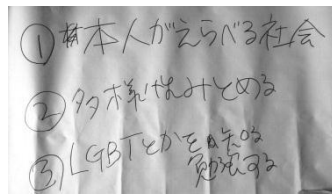 ① 本人がえらべる社会
② 多様性みとめる
③ LGBTとかを知る
勉強する